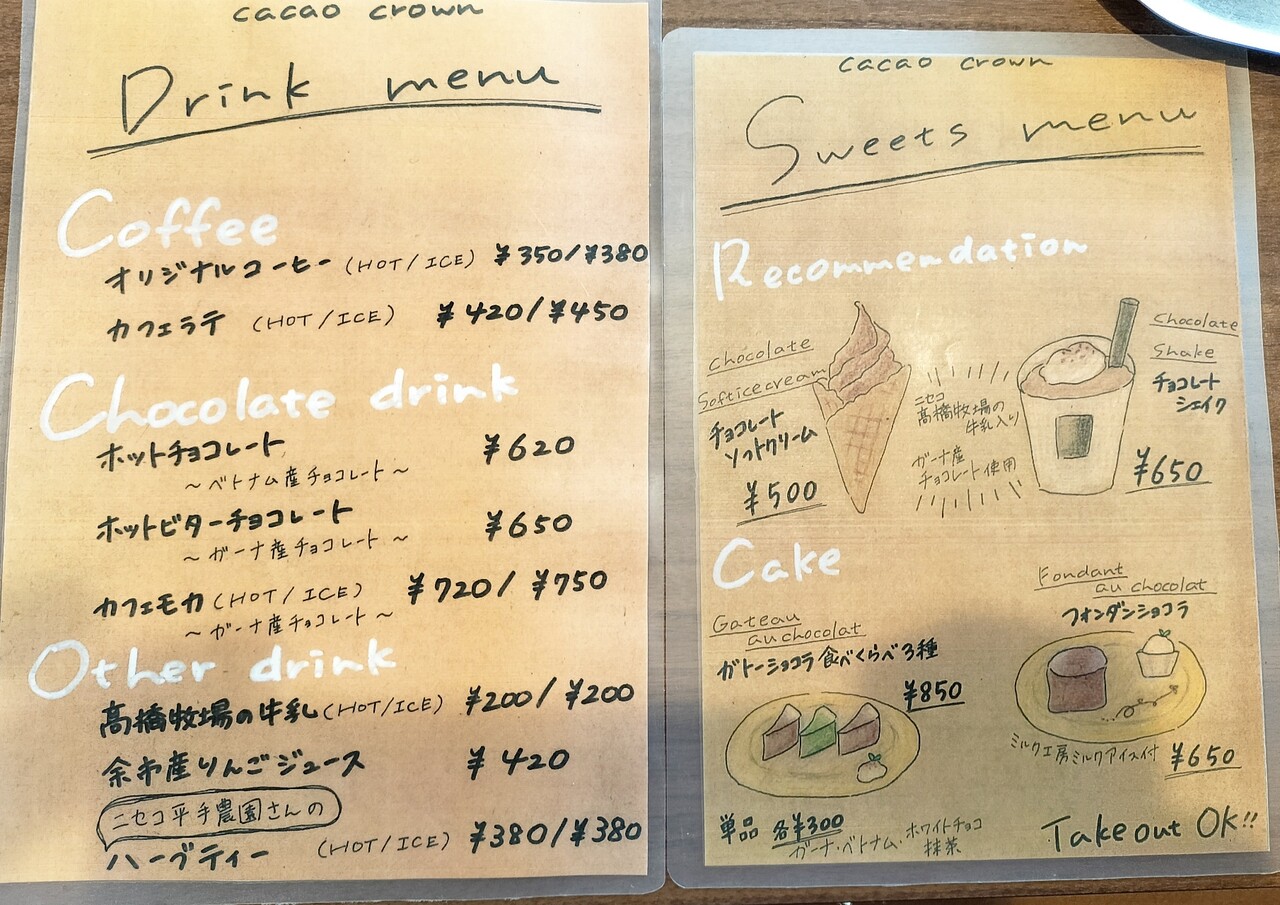 cacao crown
Drink menu
Coffee
オリジナルコーヒー (HOT/ICE) ¥350/¥380
カフェラテ (HOT/ICE) ¥420/¥450
Chocolate drink
ホットチョコレート ¥620
～ベトナム産チョコレート～
ホットビターチョコレート ¥650
～ガーナ産チョコレート～
カフェモカ (HOT/ICE) ¥720/¥750
～ガーナ産チョコレート～
Other drink
高橋牧場の牛乳 (HOT/ICE) ¥200/¥200
余市産りんごジュース ¥420
ニセコ平手農園さんの
ハーブティー (HOT/ICE) ¥380/¥380
cacao crown
Sweets menu
Recommendation
Chocolate
Softicecream
チョコレート
ソフトクリーム
¥500
ニセコ
高橋牧場の
牛乳入り
ガーナ産
チョコレート使用
Chocolate
Shake
チョコレート
シェイク
¥650
Cake
Gateau
au chocolat
ガトーショコラ食べくらべ3種
¥850
単品 各¥300
ガーナ・ベトナム・ホワイトチョコ
抹茶
Fondant
au chocolat
フォンダンショコラ
ミルク工房ミルクアイス付 ¥650
Takeout OK!!